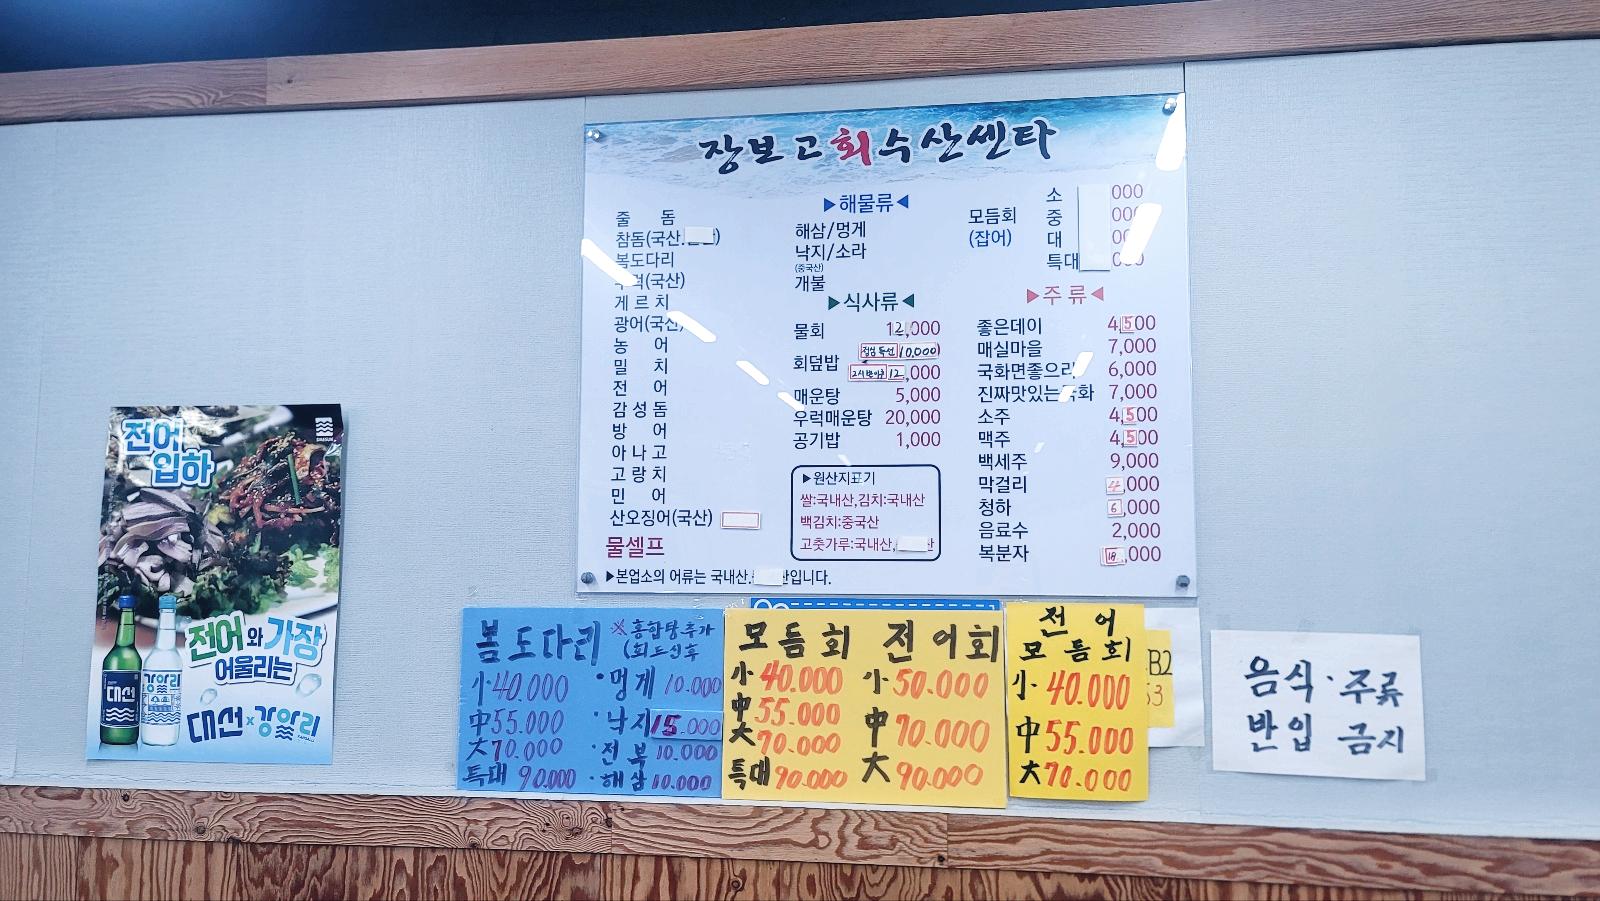 장보고회수산센타
줄 돔
참돔(국산.
복도다리
(국산)
게르치
광어(국산)
농 어
밀 치
전 어
감성돔
방 어
아나고
고랑치
민 어
산오징어(국산)
물셀프
▶본업소의 어류는 국내산. 산입니다.
▶해물류◀
해삼/멍게
낙지/소라
(중국산)
개불
▶식사류◀
물회 12,000
점심특선 10,000
회덮밥
12,000
매운탕 5,000
우럭매운탕 20,000
공기밥 1,000
▶원산지표기
쌀:국내산,김치:국내산
백김치:중국산
고춧가루:국내산, 산
모듬회
(잡어)
소 000
중 000
대 000
특대 000
▶주 류◀
좋은데이 4,500
매실마을 7,000
국화면좋으리 6,000
진짜맛있는국화 7,000
소주 4,500
맥주 4,500
백세주 9,000
막걸리 4,000
청하 6,000
음료수 2,000
복분자 18,000
전어
입하
전어와 가장
어울리는
대선x강알리
대선
강알리
봄도다리
小 40.000
中 55.000
大 70.000
특대 90.000
※홍합탕추가
(회드신후
·멍게 10.000
·낙지 15.000
·전복 10.000
·해삼 10.000
모듬회
小 40.000
中 55.000
大 70.000
특대 90.000
전어회
小 50.000
中 70.000
大 90.000
전 어
모듬회
小 40.000
中 55.000
大 70.000
B2
53
음식·주류
반입 금지